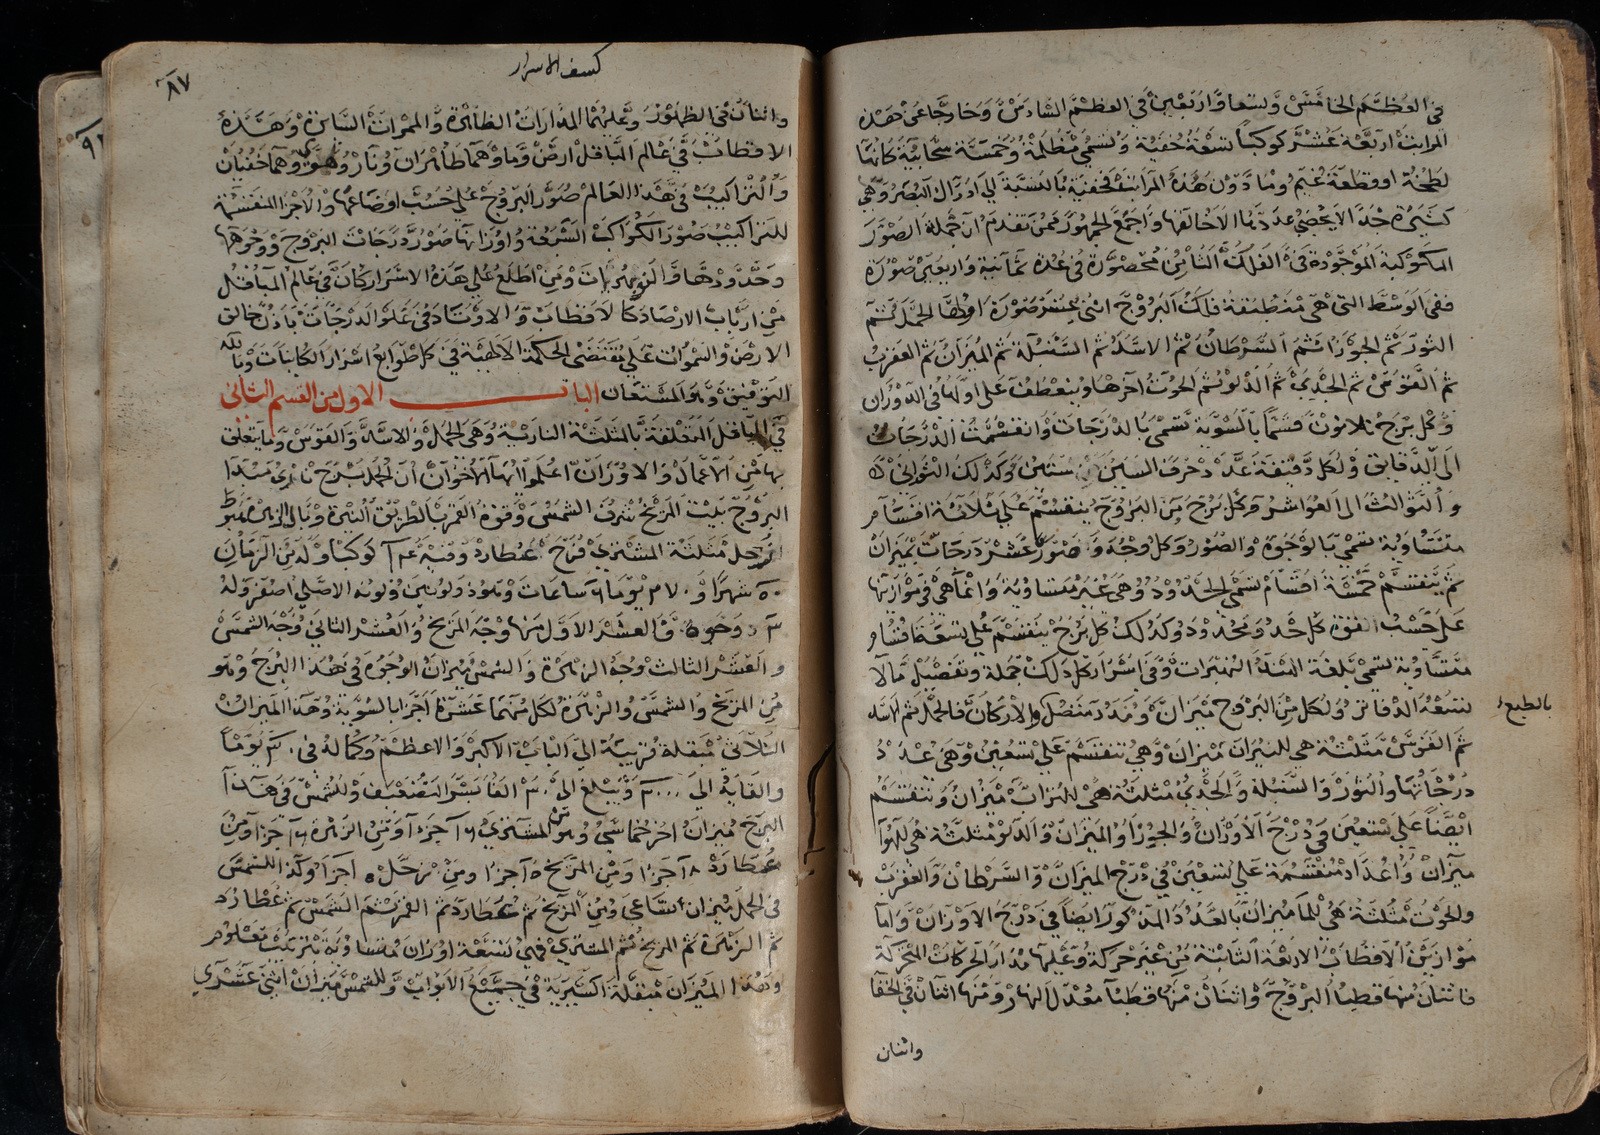 في العظم الخامس وتسعا واربعين في العظم السادس وخارجا عن هذه
المراتب اربعة عشر كوكبا تسعة خفية وتسمى مظلمة وخمسة سحابية كانها
لطخة او قطعة غيم وما دون هذه المراتب فخفية بالنسبة الى ادراك البصر وهي
كثيرة جدا لا يحصى عددها الا خالقها واجمع الجمهور ممن تقدم ان جملة الصور
المكوكبة الموجودة في الفلك الثامن محصورة في عدة ثمانية واربعين صورة
ففي الوسط التي هي منطقة فلك البروج اثنى عشر صورة اولها الحمل ثم
الثور ثم الجوزا ثم السرطان ثم الاسد ثم السنبلة ثم الميزان ثم العقرب
ثم القوس ثم الجدي ثم الدلو ثم الحوت اخرها وينعطف على اولها في الدوران
وكل برج ثلاثون قسما بالسوية تسمى بالدرجات وانقسمت الدرجات
الى الدقايق ولكل دقيقة عدد حرف السين ستين وكذلك الثواني
والثوالث الى العواشر وكل برج من البروج ينقسم على ثلاثة اقسام
متساوية تسمى بالوجوه والصور وكل وجه وصورة عشر درجات بميزان
ثم ينقسم خمسة اقسام تسمى الحدود وهي غير متساوية وانما هي في موازنتها
على حسب القوة كل حد ومحدود وكذلك كل برج ينقسم على تسعة اقسام
متساوية تسمى بلغة النمهرات وفي اسرار كل ذلك جملة وتفصيل مالا
تسعه الدفاتر ولكل من البروج ميزان ومدد متصل والاركان فالحمل ثم الاسد
بالطبع
ثم القوس مثلثة هي للنيران ميزان وهي تنقسم على تسعين وهي عدد
درجاتها والثور والسنبلة والجدي مثلثة هي للتراب ميزان وتنقسم
ايضا على تسعين في درج الاوزان والجوزا والميزان والدلو مثلثة هي للهوا
ميزان واعداد منقسمة على تسعين في درج الميزان والسرطان والعقرب
والحوت مثلثة هي للما ميزان بالعدد المذكور ايضا في درج الاوزان واما
موازين الاقطاب الاربعة الثابتة من غير حركة وعليها مدار الحركات المتحركة
فاثنان منها قطبا البروج واثنان منها قطبا معدل النهار ومنها اثنان في الخفا
واثنان
كشف الاسرار
٨٧
واثنان في الظهور وعليهما المدارات الظاهرة والممرات السايرة وهذه
الاقطاب في عالم المباقل ارض وما وهما ظاهران ونار وهوا وهما خفيان
والتراكيب في هذا العالم صور البروج على حسب اوضاعها والاجزا المنقسمة
للتراكيب صور الكواكب السبعة واوزانها صور درجات البروج ووجوهها
وحدودها والنمهرات ومن اطلع على هذه الاسرار كان في عالم المباقل
من ارباب الارصاد كالاقطاب والاوتاد في علو الدرجات باذن خالق
الارض والسموات على مقتضى الحكمة الالهية في كل طوابع اسرار الكاينات وبالله
التوفيق وهو المستعان الباب الاول من القسم الثاني
في المباقل المتعلقة بالمثلثة النارية وهي الحمل والاسد والقوس وما يتعلق
بها من الاعمال والاوزان اعلموا ايها الاخوان ان الحمل برج ناري مبدا
البروج بيت المريخ شرف الشمس وقوة القمر بالطريق النيرة وبال الزهرة هبوط
زحل مثلثة المشتري فرح عطارد وفيه ١٣ كوكبا وله من الزمان
شهرا و ٣٠ يوما ساعات وهو ذو لونين ولونه الاصلي اصفر وله
٣ وجوه فالعشر الاول منها وجه المريخ والعشر الثاني وجه الشمس
والعشر الثالث وجه الزهرة والشمس ميزان الوجوه في هذا البرج وهو
من المريخ والشمس والزهرة لكل منهما عشرة اجزا بالسوية وهذا الميزان
الثلاثي مبقلة قريبة الى الباب الاكبر والاعظم وكماله في ٣٠ يوما
والغاية الى ٣٠٠٠ ويبلغ الى ٣٠ الفا بسر التضعيف وللشمس في هذا
البرج ميزان اخر خماسي وهو من المشتري ٦ اجزا ومن الزهرة ٦ اجزا ومن
عطارد ٨ اجزا ومن المريخ ٥ اجزا ومن زحل ٥ اجزا وكذا للشمس
في الحمل ميزان تساعي ومن المريخ ثم عطارد ثم القمر ثم الشمس ثم عطارد
ثم الزهرة ثم المريخ ثم المشتري فهي تسعة اوزان متساوية بترتيب معلوم
وهذا الميزان مبقلة اكسيرية في جميع الابواب وللشمس ميزان اثنى عشري